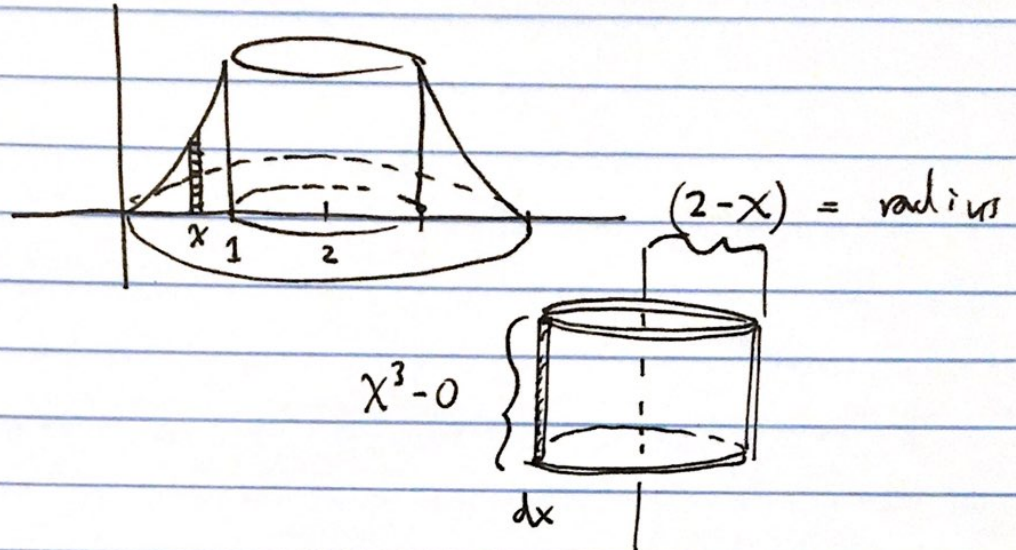 x 1 2
(2-x) = radius
x³-0
dx